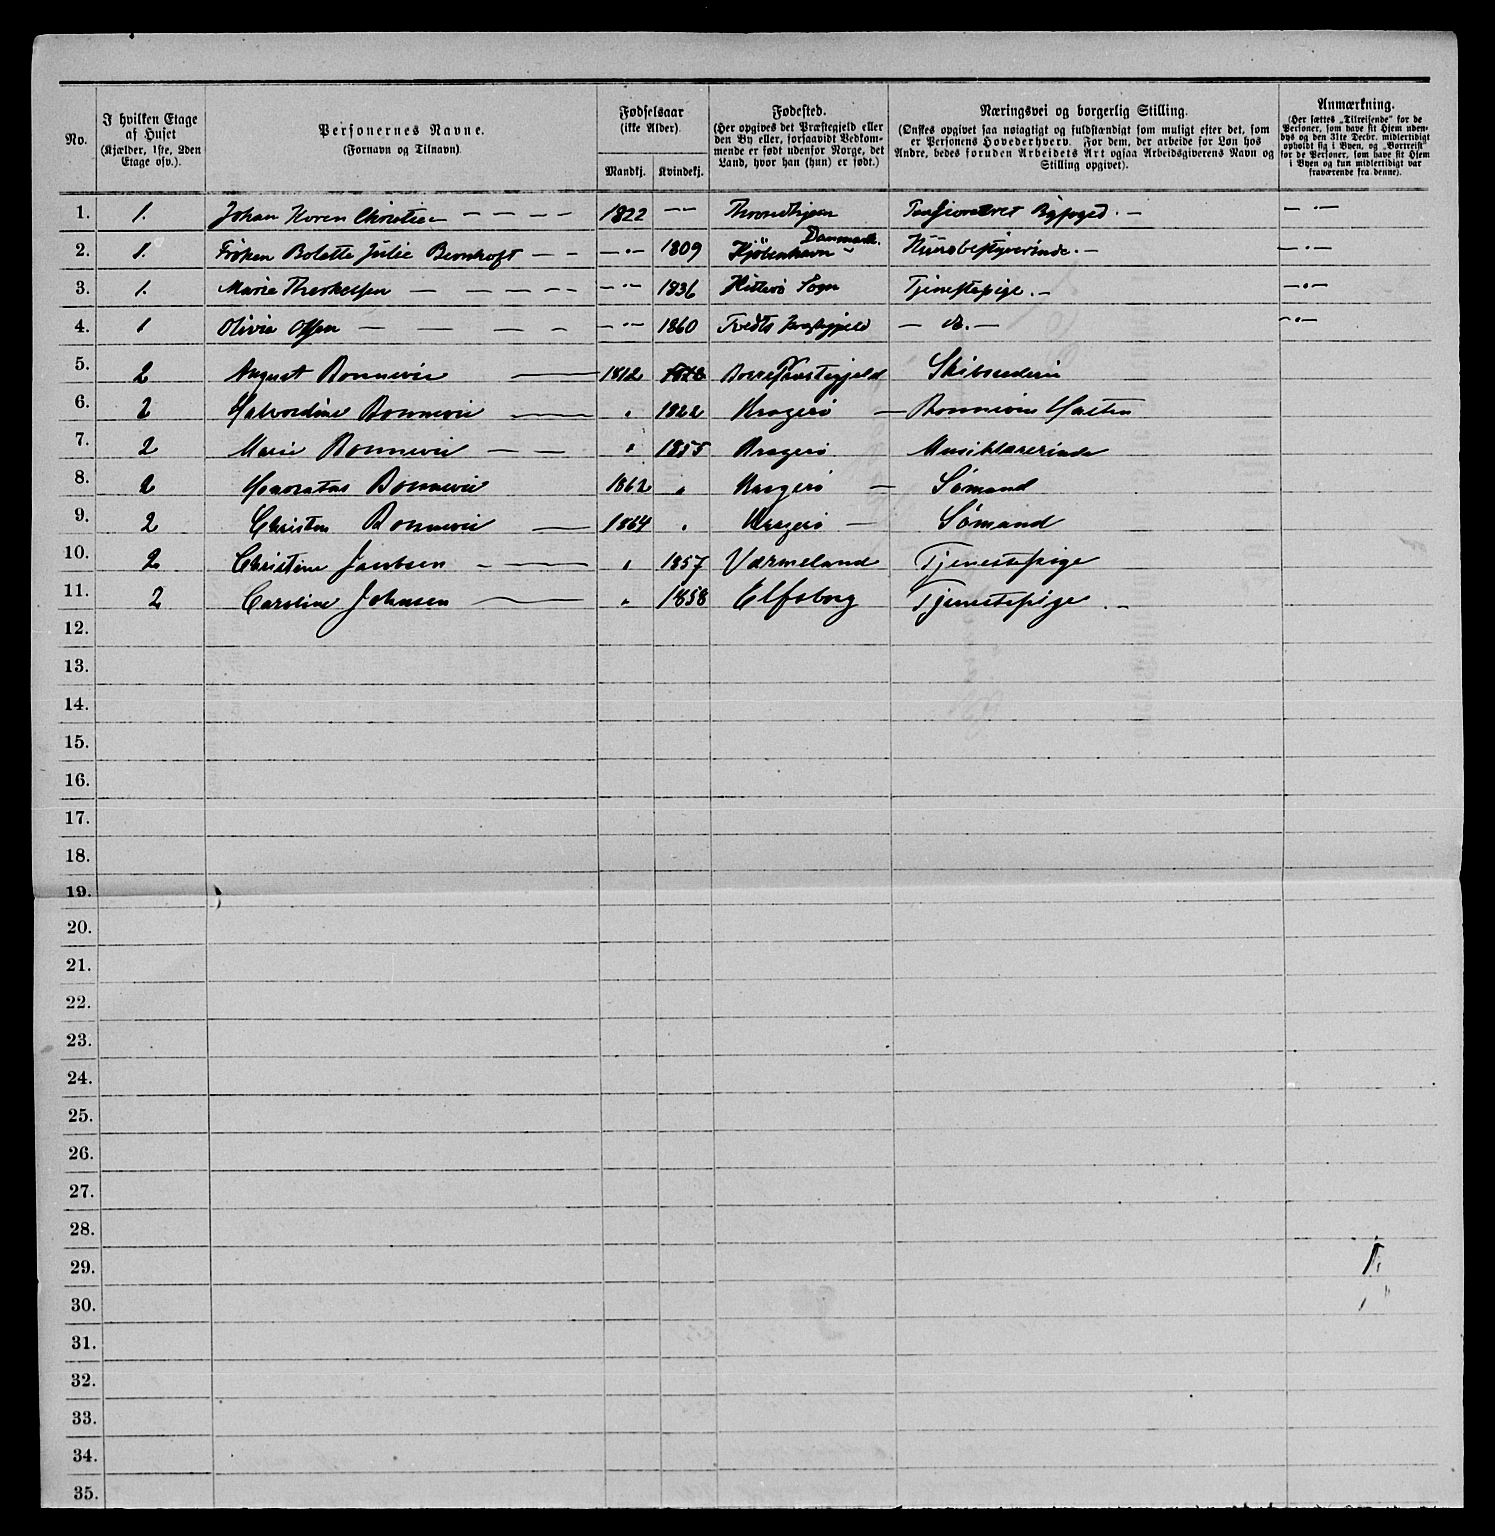 No.
I hvilken Etage af Huset (Kjælder, 1ste, 2den Etage osv.).
Personernes Navne.
(Fornavn og Tilnavn)
Fødselsaar
(ikke Alder).
Mandkj. Kvindekj.
Fødested.
(Her opgives det Præstegjeld eller
den By eller, forsaavidt Vedkom-
mende er født udenfor Norge, det
Land, hvor han (hun) er født.)
Næringsvei og borgerlig Stilling.
(Ønskes opgivet saa nøiagtigt og fuldstændigt som muligt efter det, som
er Personens Hovederhverv. For dem, der arbeide for Løn hos
Andre, bedes foruden Arbeidets Art ogsaa Arbeidsgiverens Navn og
Stilling opgivet).
Anmærkning.
(Her sættes „Tilreisende" for de
Personer, som have sit Hjem uden-
bys og den 31te Decbr. midlertidigt
opholdt sig i Byen, og „Bortreist"
for de Personer, som have sit Hjem
i Byen og kun midlertidigt var
fraværende fra denne).
1. 1. Johan Koren Christie — — — — 1822 — — Throndhjem Pensioneret Byfoged. — — " —
2. 1. Frøken Bolette Julie Bernhoft — — — " — 1809 Kjöbenhavn Danmark. Huusbestyrerinde. — — " —
3. 1. Marie Therkelsen — — — — — — " — 1836 Hitterö Sogn Tjenestepige. — — " —
4. 1 Olivia Olsen — — — — — " — 1860 Tvedts Præstegjeld — do. — — " —
5. 2 August Bonnevie — 1812 Borre Præstegjeld Skibsrederi
6. 2 Halvordine Bonnevie — " 1822 Kragerö — Bonnevies
7. 2 Marie Bonnevie — — " 1855 Kragerö Musiklærerinde
8. 2 Honoratus Bonnevie 1862 " Kragerö — Sömand
9. 2 Christen Bonnevie — 1864 " Kragerö — Sömand
10. 2 Christine Jacobsen — — " 1857 Værmeland Tjenestepige
11. 2 Caroline Johnsen — " 1858 Elfsborg Tjenestepige. —
12.
13.
14.
15.
16.
17.
18.
19.
20.
21.
22.
23.
24.
25.
26.
27.
28.
29.
30.
31.
32.
33.
34.
35.